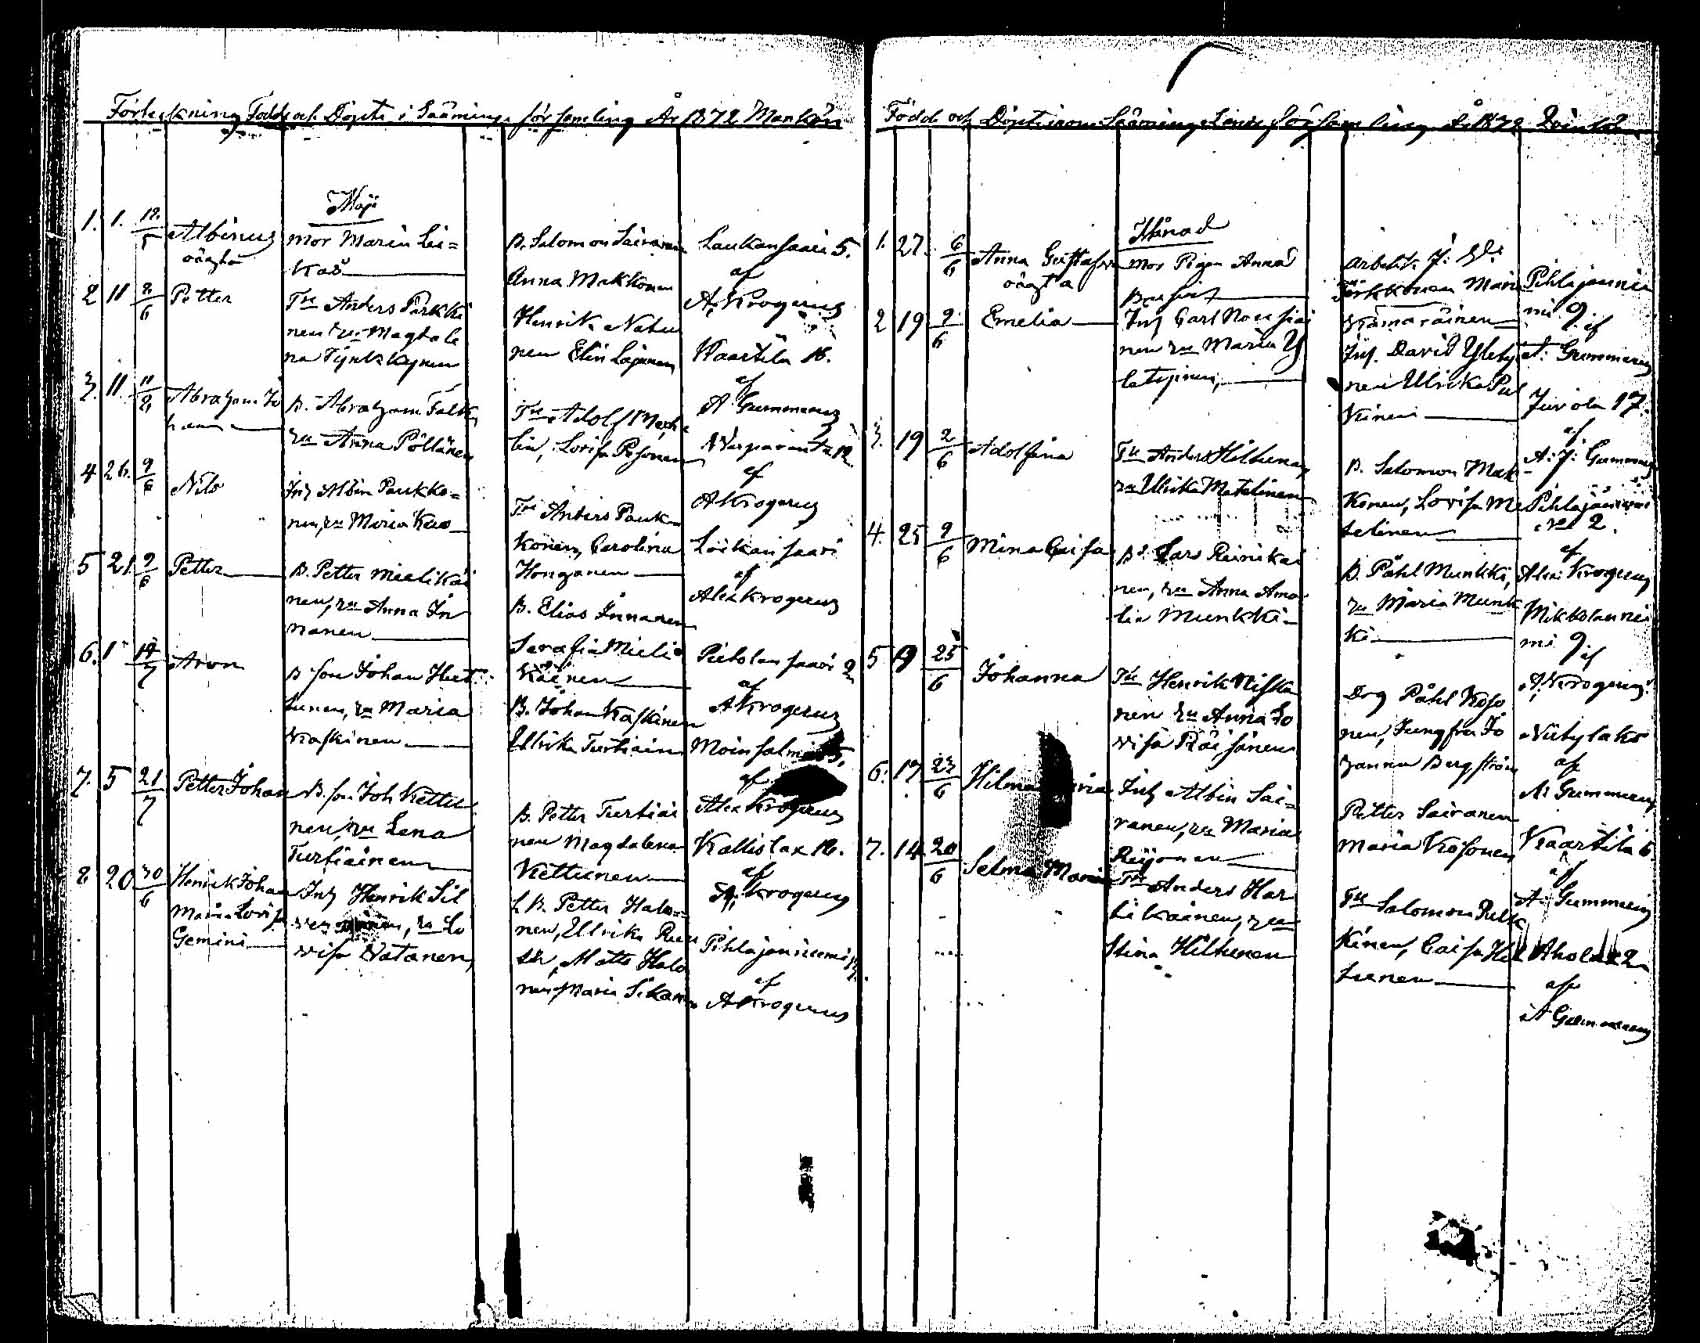 Förteckning Födde och Döpte i Sääminge församling År 1872 Mankön
Maji
1. 1. 12/5 Albinus mor Maria Lei=
oägta kas
B. Salomon Sairanen Laukansaari 5.
Anna Makkonen af
A. Krogerus
2 11 2/6 Petter Tre Anders Parkki
nen & Magdale
na Tynkkynen
Henrik Natu
nen Elin Lajunen Kaartila 16.
af
A Gummerus
3. 11 11/6 Abraham Jo
han
B. Abraham Falk
hu Anna Pöllänen
Tre Adolf
lin, Lovisa Pesonen
af
A Krogerus
4 26. 9/6 Nilo Inh Albin Paukko=
nen, hu Maria Kuo
Tre Anders Pauk
konen, Carolina Loikansaari
Honganen af
Alex Krogerus
5 21. 9/6 Petter B. Petter Mielikäi
nen, hu Anna In
nanen
B. Elias Innanen
Serafia Mieli
käinen Pietolansaari 2
af
A Krogerus
6. 1 14/7 Aron B. son Johan Hut
tunen, hu Maria
Kaskinen
B. Johan Kaskinen
Ulrika Turtiain Moinsalmi 5.
af
Alex Krogerus
7. 5 21/7 Petter Johan B. son Joh Kettu
nen, hu Lena
Turtiainen
B. Petter Turtiai
nen Magdalena Kallislax 16.
Kettunen af
A. Krogerus
8 20 30/6 Henrik Johan
Maria Lovisa
Gemini
Inh Henrik Sil
vennoinen, hu Lo
visa Natanen,
L B. Petter Halo=
nen, Ulrika
Matts Halo
nen Maria Pihlajaniemi
af
A Krogerus
Född och Döpte inom Sääminge Lands församling År 1872 Qvinkön
Månad
1. 27. 6/6 Anna Gustafva mor Pigan Anna
oägta
Arbetsk. J.
Maria Pihlajanie
Kämäräinen mi 9. af
A: Gummerus
2 19 9/6 Emelia Inh Carl Nousiai
nen hu Maria Y
letyinen
Inh. David Ylety
nen Ulrika Pul
kinen Juvola 17.
af
A: J: Gummerus
3. 19 2/6 Adolfina Tre Anders Hiltunen
hu Ulrika Matilainen
B. Salomon Mak
konen, Lovisa Me Pihlajaniemi
telinen No 2.
af
Alex Krogerus
4. 25 9/6 Mina Caisa B. Lars Reinikai
nen, hu Anna Ama
lia Munkki
B. Påhl Munkki,
hu Maria Munk Mikkolannie
ki mi 9 af
A. Krogerus
5 19 25/6 Johanna Tre Henrik Niska
nen hu Anna Lo
visa Räisänen
Drg Påhl Koso
nen, Jungfru Jo Nätylaks
hanna Bergström af
A: Gummerus
6. 17 23/6 Hilma Maria Inh Albin Sai=
ranen, hu Maria
Reijonen
Petter Sairanen
Maria Kosonen Kaartila 6
af
A: Gummerus
7. 14 20/6 Selma Maria Tre Anders Har
likainen, hu
Stina Hiltunen
Tre Salomon Pulk
kinen, Caisa Hil Ahola 2
tunen af
A Gummerus